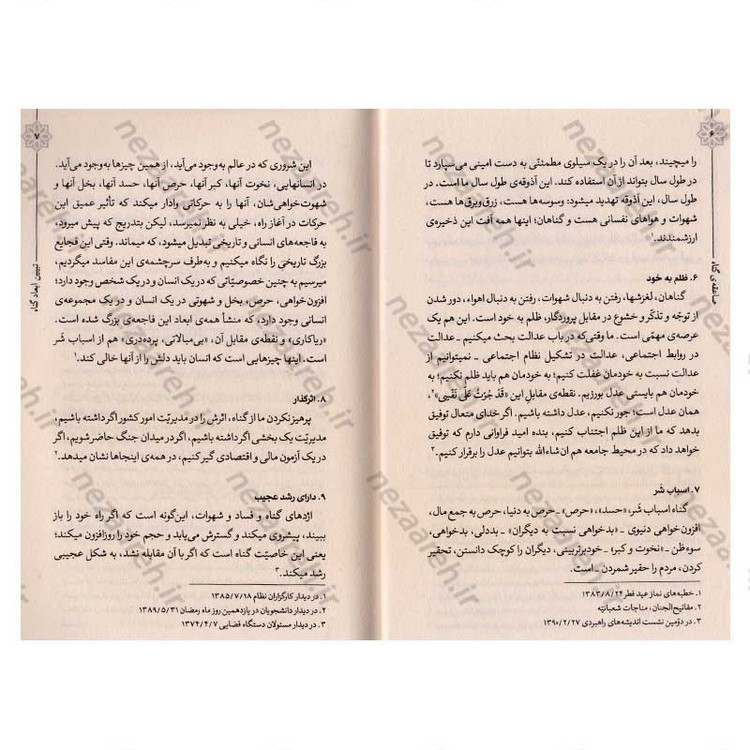 ۶
صاعقه‌ی گناه
را میچیند، بعد آن را در یک سیلوی مطمئنّی به دست امینی می‌سپارد تا
در طول سال بتواند از آن استفاده کند. این آذوقه‌ی سال ما است. در
طول سال، این آذوقه تهدید میشود؛ وسوسه‌ها هست، زرق‌وبرق‌ها هست،
شهوات و هواهای نفسانی هست و گناهان؛ اینها همه آفت این ذخیره‌ی
ارزشمندند.۱
۶. ظلم به خود
گناهان، لغزشها، رفتن به دنبال شهوات، رفتن به دنبال اهواء، دور شدن
از توجّه و تذکّر و خشوع در مقابل پروردگار، ظلم به خود است. این هم یک
عرصه‌ی مهمّی است. ما وقتی‌که در باب عدالت بحث میکنیم ـ عدالت
در روابط اجتماعی، عدالت در تشکیل نظام اجتماعی ـ نمیتوانیم از
عدالت نسبت به خودمان غفلت کنیم؛ به خودمان هم باید ظلم نکنیم؛ به
خودمان هم بایستی عدل بورزیم. نقطه‌ی مقابلِ این «قَد جُرتُ عَلىٰ نَفسی»۲،
همان عدل است؛ جور نکنیم، عدل داشته باشیم. اگر خدای متعال توفیق
بدهد که ما از این ظلم اجتناب کنیم، بنده امید فراوانی دارم که توفیق
خواهد داد که در محیط جامعه هم ان‌شاءالله بتوانیم عدل را برقرار کنیم.۳
۷. اسباب شر
گناه اسباب شَر، «حسد»، «حرص» ـ حرص به دنیا، حرص به جمع مال،
افزون‌خواهی دنیوی ـ «بدخواهی نسبت به دیگران» ـ بددلی، بدخواهی،
سوءظن ـ «نخوت و کبر» ـ خودبرتربینی، دیگران را کوچک دانستن، تحقیر
کردن، مردم را حقیر شمردن ـ است.
۱. خطبه‌های نماز عید فطر ۱۳۸۳/۸/۲۴
۲. مفاتیح‌الجنان، مناجات شعبانیّه
۳. در دوّمین نشست اندیشه‌های راهبردی ۱۳۹۰/۲/۲۷
۷
تبیین ابعاد گناه
این شروری که در عالم به‌وجود می‌آید، از همین چیزها به‌وجود می‌آید.
در انسانهایی، نخوت آنها، کبر آنها، حرص آنها، حسد آنها، بخل آنها و
شهوت‌خواهی‌شان، آنها را به حرکاتی وادار میکند که تأثیر عمیق این
حرکات در آغاز راه، خیلی به نظر نمیرسد، لیکن بتدریج که پیش میرود،
به فاجعه‌های انسانی و تاریخی تبدیل میشود، که میماند. وقتی این فجایع
بزرگ تاریخی را نگاه میکنیم و به‌طرف سرچشمه‌ی این مفاسد میگردیم،
میرسیم به چنین خصوصیّاتی که در یک انسان و در یک شخص وجود دارد؛
افزون‌خواهی، حرص، بخل و شهوتی در یک انسان و در یک مجموعه‌ی
انسانی وجود دارد، که منشأ همه‌ی ابعاد این فاجعه‌ی بزرگ شده است.
«ریاکاری» و نقطه‌ی مقابل آن، «بی‌مبالاتی، پرده‌دری» هم از اسباب شَر
است. اینها چیزهایی است که انسان باید دلش را از آنها خالی کند.۱
۸. اثرگذار
پرهیز نکردن ما از گناه، اثرش را در مدیریّت امور کشور اگر داشته باشیم،
مدیریّت یک بخشی اگر داشته باشیم، اگر در میدان جنگ حاضر شویم، اگر
در یک آزمون مالی و اقتصادی گیر کنیم، در همه‌ی اینجاها نشان میدهد.۲
۹. دارای رشد عجیب
اژدهای گناه و فساد و شهوات، این‌گونه است که اگر راه خود را باز
ببیند، پیشروی میکند و گسترش می‌یابد و حجم خود را روزافزون میکند؛
یعنی این خاصیّت گناه است که اگر با آن مقابله نشد، به شکل عجیبی
رشد میکند.۳
۱. در دیدار کارگزاران نظام ۱۳۸۵/۷/۱۸
۲. در دیدار دانشجویان در یازدهمین روز ماه رمضان ۱۳۸۹/۵/۳۱
۳. در دیدار مسئولان دستگاه قضایی ۱۳۷۴/۴/۷
nezaareh.ir
nezaareh.ir
nezaareh.ir
nezaareh.ir
nezaareh.ir
nezaareh.ir
nezaareh.ir
nezaareh.ir
nezaareh.ir
nezaareh.ir
nezaareh.ir
nezaareh.ir